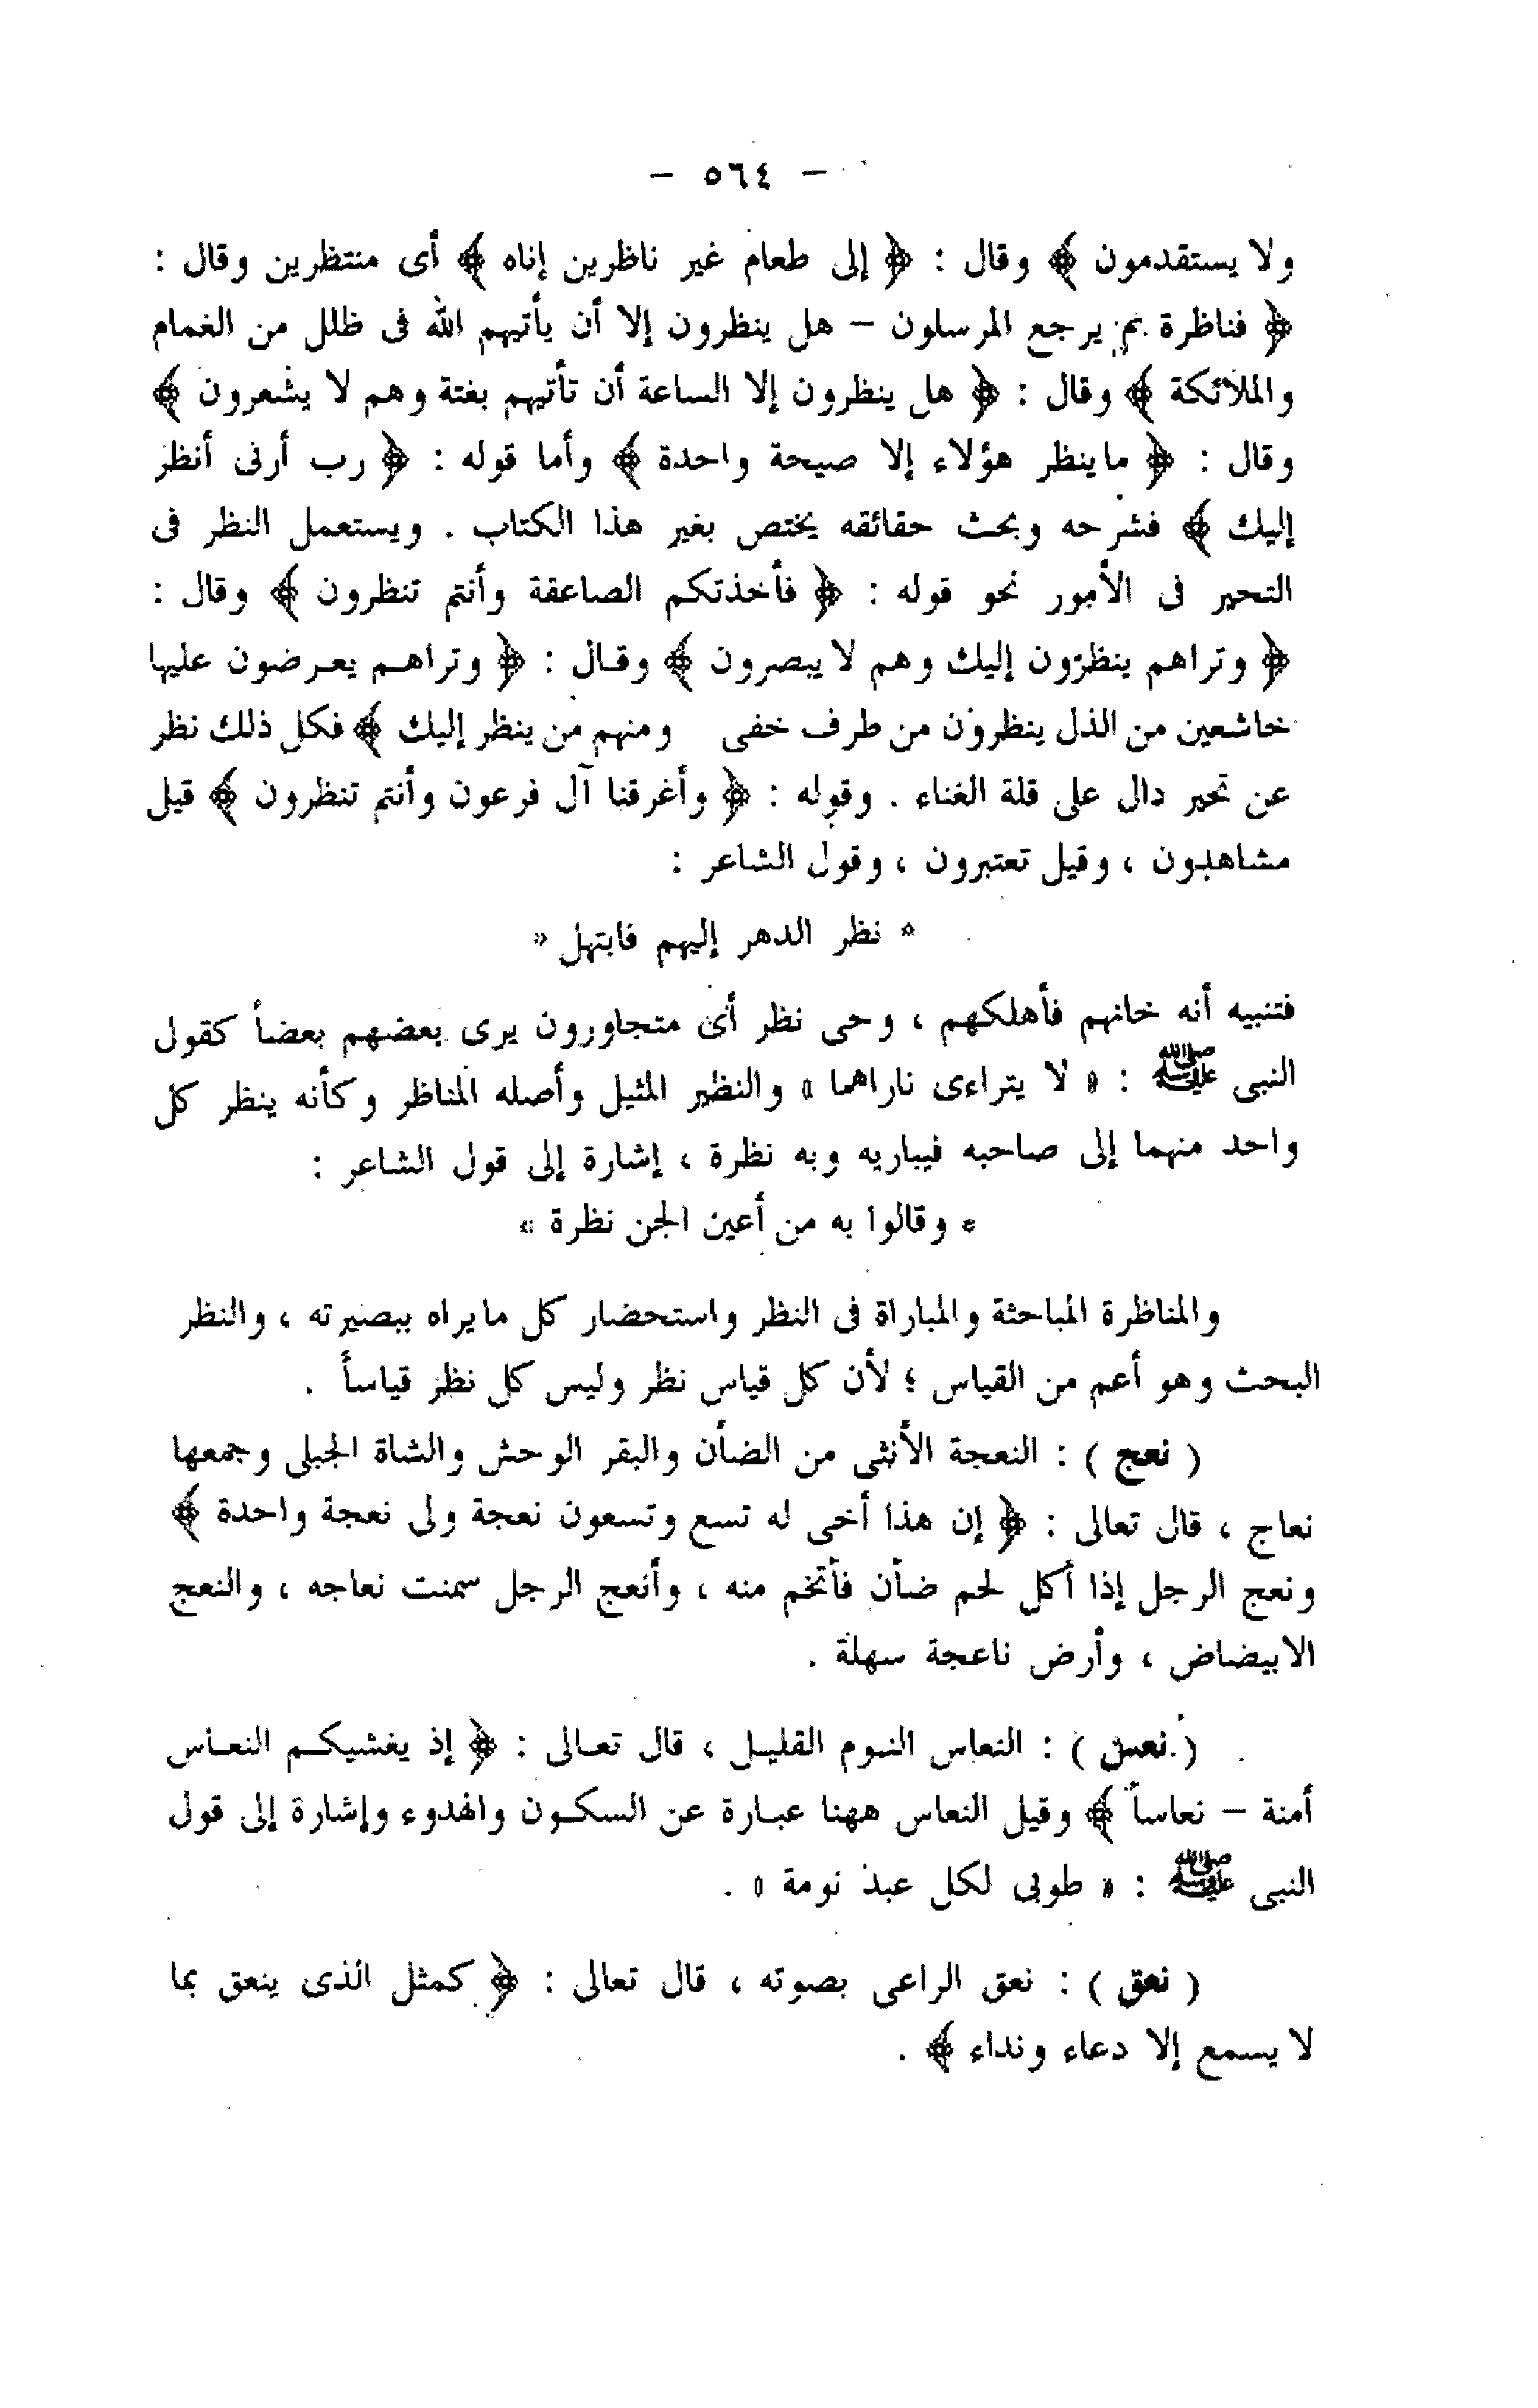 - ٥٦٤ -
ولا يستقدمون ﴾ وقال : ﴿ إلى طعام غير ناظرين إناه ﴾ أى منتظرين وقال :
﴿ فناظرة بم يرجع المرسلون - هل ينظرون إلا أن يأتيهم الله فى ظلل من الغمام
والملائكة ﴾ وقال : ﴿ هل ينظرون إلا الساعة أن تأتيهم بغتة وهم لا يشعرون ﴾
وقال : ﴿ ماينظر هؤلاء إلا صيحة واحدة ﴾ وأما قوله : ﴿ رب أرنى أنظر
إليك ﴾ فشرحه وبحث حقائقه يختص بغير هذا الكتاب . ويستعمل النظر فى
التحير فى الأمور نحو قوله : ﴿ فأخذتكم الصاعقة وأنتم تنظرون ﴾ وقال :
﴿ وتراهم ينظرون إليك وهم لا يبصرون ﴾ وقال : ﴿ وتراهم يعرضون عليها
خاشعين من الذل ينظرون من طرف خفى ومنهم من ينظر إليك ﴾ فكل ذلك نظر
عن تحير دال على قلة الغناء . وقوله : ﴿ وأغرقنا آل فرعون وأنتم تنظرون ﴾ قيل
مشاهدون ، وقيل تعتبرون ، وقول الشاعر :
* نظر الدهر إليهم فابتهل *
فتنبيه أنه خانهم فأهلكهم ، وحى نظر أى متجاورون يرى بعضهم بعضاً كقول
النبى ﷺ : « لا يتراءى ناراهما » والنظير المثيل وأصله المناظر وكأنه ينظر كل
واحد منهما إلى صاحبه فيباريه وبه نظرة ، إشارة إلى قول الشاعر :
* وقالوا به من أعين الجن نظرة *
والمناظرة المباحثة والمباراة فى النظر واستحضار كل مايراه ببصيرته ، والنظر
البحث وهو أعم من القياس ؛ لأن كل قياس نظر وليس كل نظر قياساً .
( نعج ) : النعجة الأنثى من الضأن والبقر الوحش والشاة الجبلى وجمعها
نعاج ، قال تعالى : ﴿ إن هذا أخى له تسع وتسعون نعجة ولى نعجة واحدة ﴾
ونعج الرجل إذا أكل لحم ضأن فأتخم منه ، وأنعج الرجل سمنت نعاجه ، والنعج
الابيضاض ، وأرض ناعجة سهلة .
( نعس ) : النعاس النوم القليل ، قال تعالى : ﴿ إذ يغشيكم النعاس
أمنة - نعاساً ﴾ وقيل النعاس ههنا عبارة عن السكون والهدوء وإشارة إلى قول
النبى ﷺ : « طوبى لكل عبد نومة » .
( نعق ) : نعق الراعى بصوته ، قال تعالى : ﴿ كمثل الذى ينعق بما
لا يسمع إلا دعاء ونداء ﴾ .